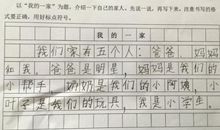 以“我的一家”为题，介绍一下自己的家人。先说一说，再写下来，注意书写的格
式要正确，用好标点符号。
我的一家
我们家有五个人：爸爸、妈妈
和我。爸爸是明星，妈妈是我们的
小帮手，奶奶是我们的小阿姨，小
叶子是我们的玩具，我是小学生。